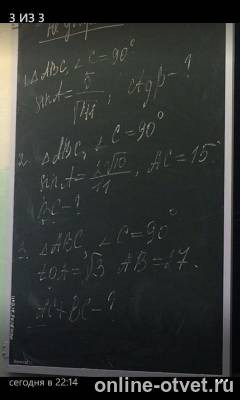 3 ИЗ 3
1. △ABC, ∠C=90°
sinA= 5/√41, ctgβ-?
2. △ABC, ∠C=90°
sin A= 2√10/11, AC=15.
BC-?
3. △ABC, ∠C=90°
tgA=√3 AB=27.
AC+BC-?
сегодня в 22:14
online-otvet.ru